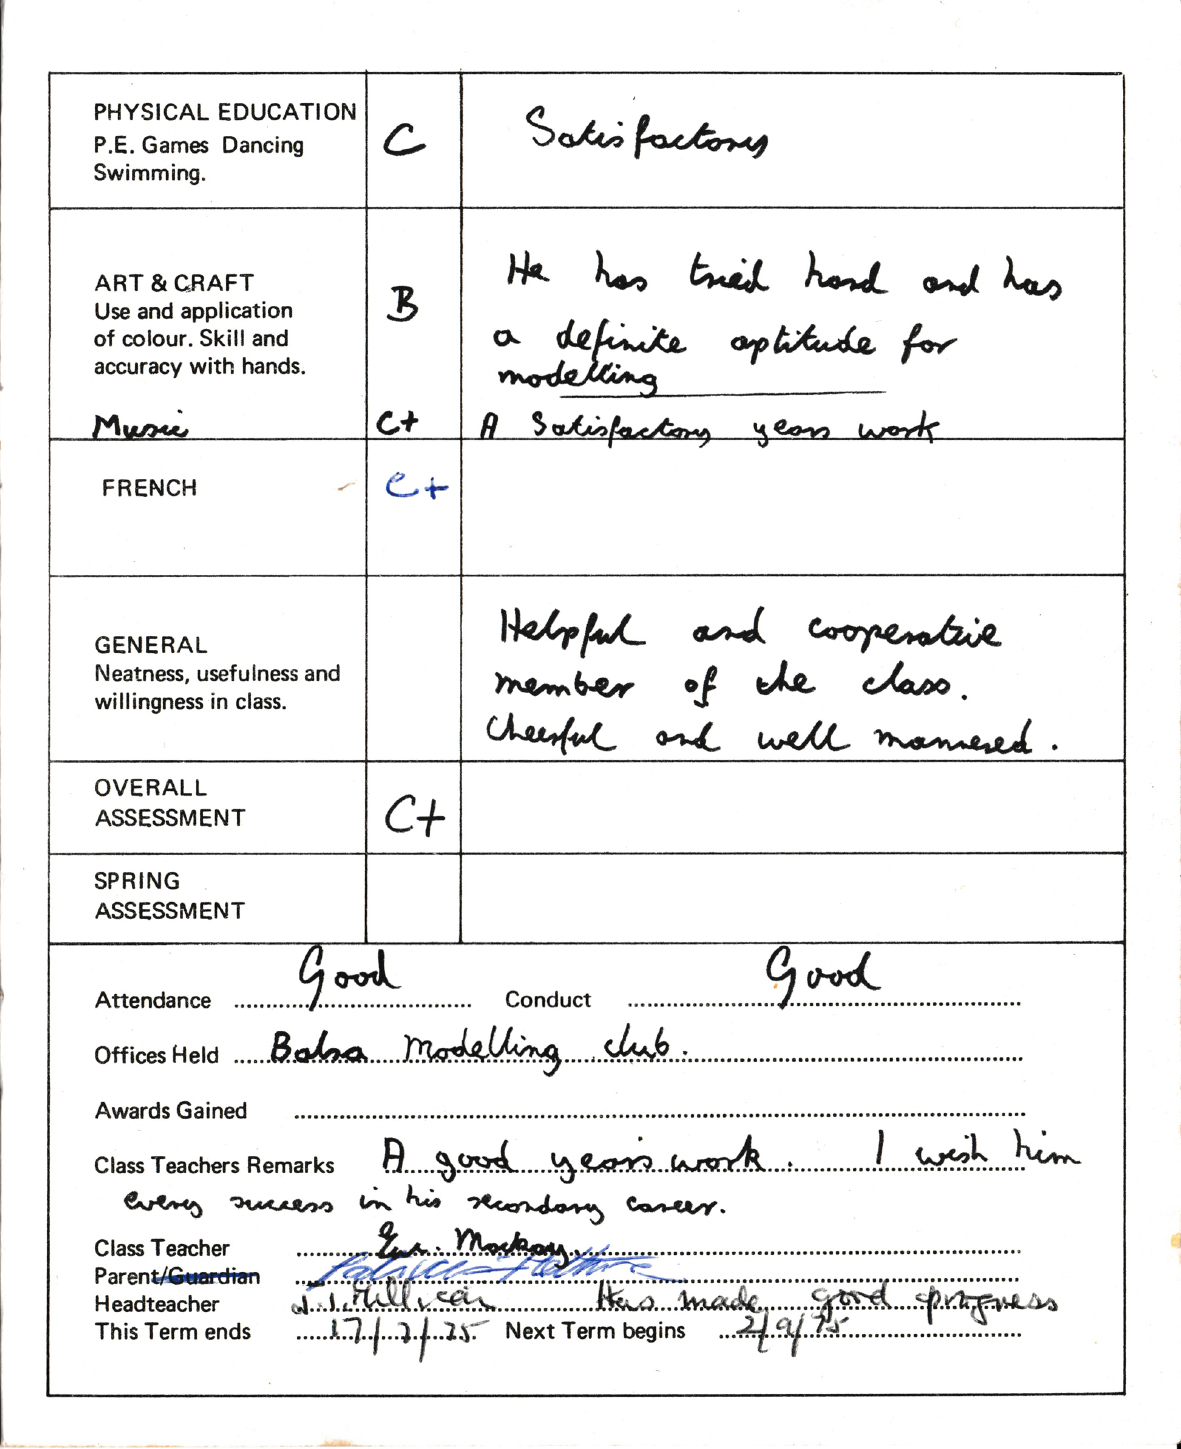 PHYSICAL EDUCATION
P.E. Games Dancing
Swimming.
C
Satisfactory
ART & CRAFT
Use and application
of colour. Skill and
accuracy with hands.
B
He has tried hard and has
a definite aptitude for
modelling
Music
C+
A Satisfactory years work
FRENCH
C+
GENERAL
Neatness, usefulness and
willingness in class.
Helpful and cooperative
member of the class.
Cheerful and well mannered.
OVERALL
ASSESSMENT
C+
SPRING
ASSESSMENT
Attendance Good Conduct Good
Offices Held Balsa Modelling club.
Awards Gained
Class Teachers Remarks A good year's work. I wish him
every success in his secondary career.
Class Teacher Mackay.
Parent/Guardian Patricia
Headteacher Has made good progress
This Term ends 17/7/75 Next Term begins 2/9/75